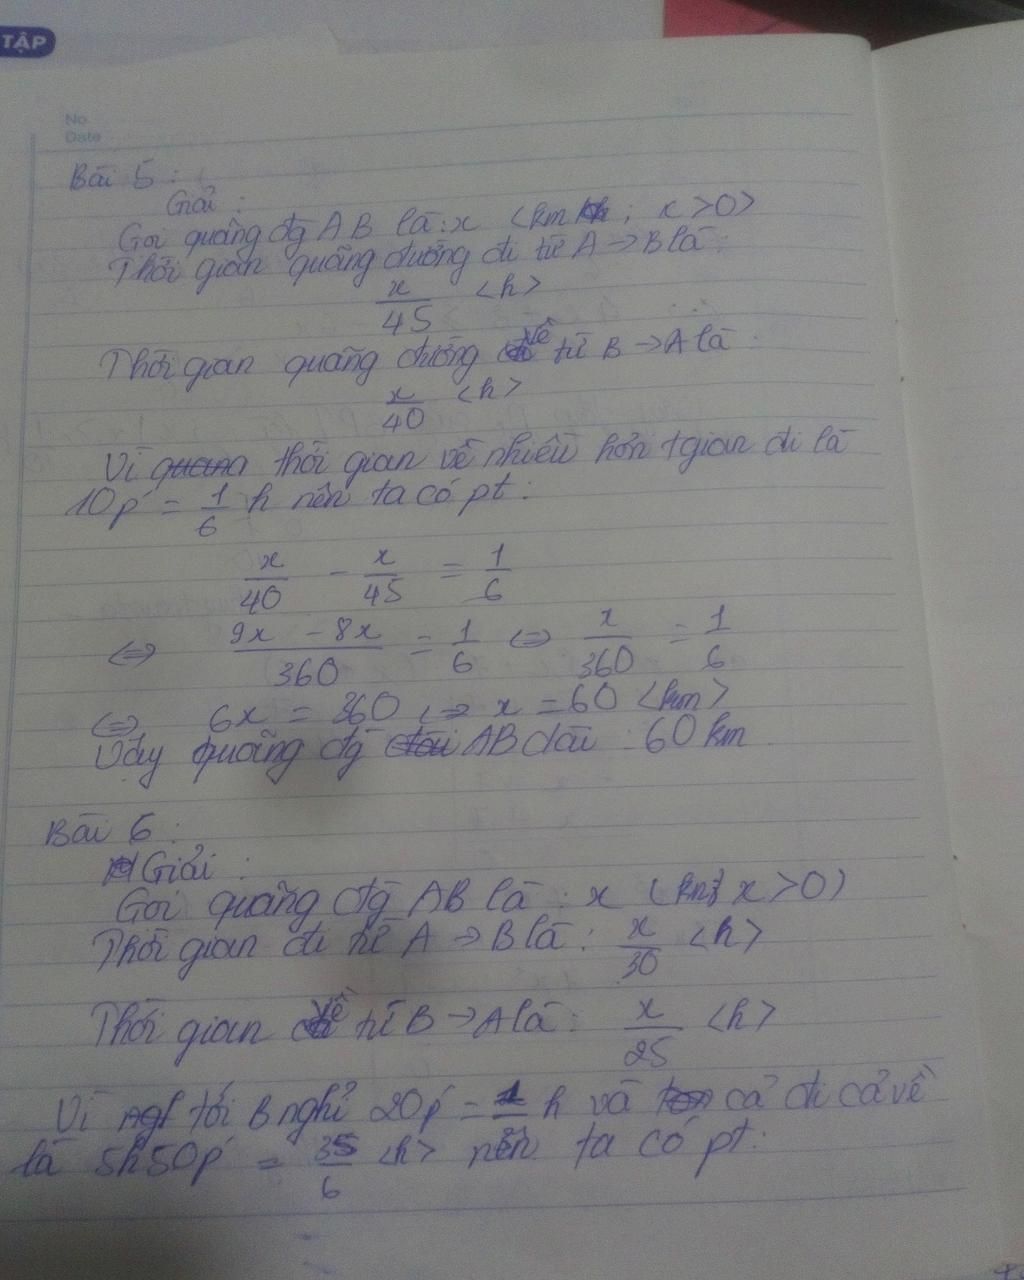 TẬP
No.
Date
Bài 5:
Giải:
Gọi quãng đg AB là: x <km ; x > 0>
Thời gian quãng đường đi từ A → B là:
x/45 <h>
Thời gian quãng đường về từ B → A là:
x/40 <h>
Vì thời gian về nhiều hơn tgian đi là
10p' = 1/6 h nên ta có pt:
x/40 - x/45 = 1/6
⇔ (9x - 8x)/360 = 1/6 ⇔ x/360 = 1/6
⇔ 6x = 360 ⇔ x = 60 <km>
Vậy quãng đg AB dài : 60 km
Bài 6:
Giải:
Gọi quãng đg AB là : x (km; x > 0)
Thời gian đi từ A → B là: x/30 <h>
Thời gian về từ B → A là: x/25 <h>
Vì tới B nghỉ 20p' = 1/3 h và cả đi cả về
là 5h50p' = 35/6 <h> nên ta có pt: